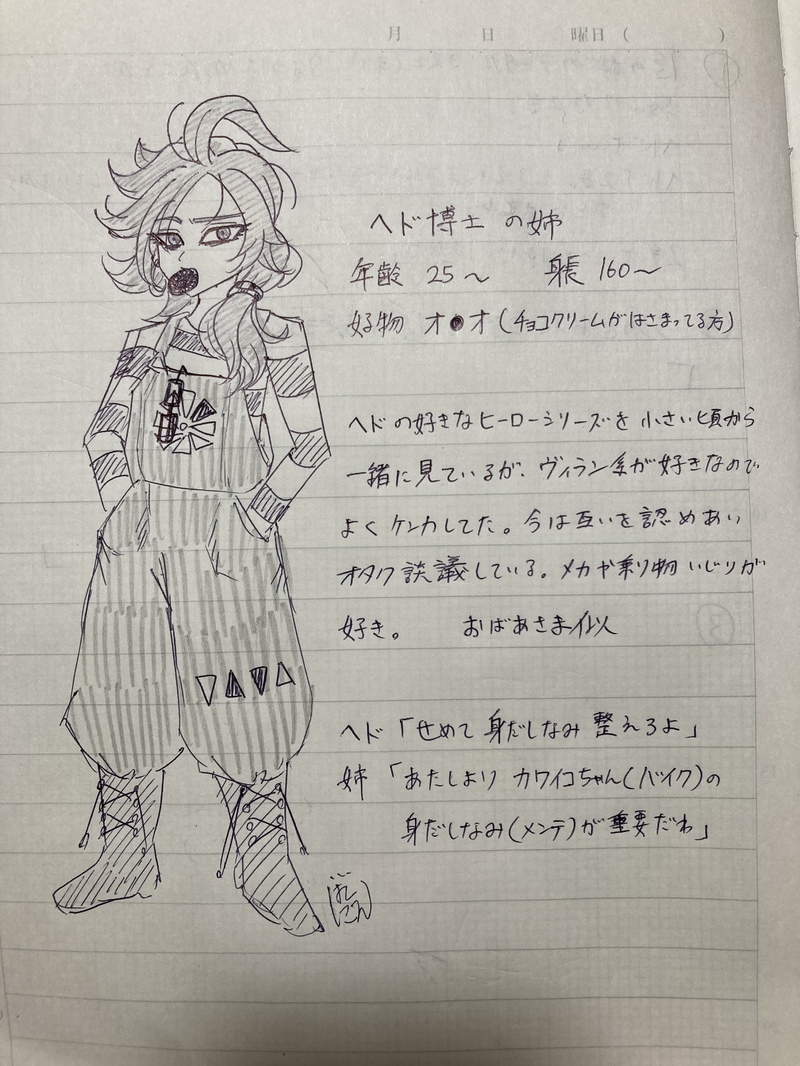 月 日 曜日( )
ヘド博士の姉
年齢 25〜 身長 160〜
好物 オ●オ(チョコクリームがはさまってる方)
ヘドの好きなヒーローシリーズを小さい頃から
一緒に見ているが、ヴィラン系が好きなので
よくケンカしてた。今は互いを認めあい
オタク談議している。メカや乗り物いじりが
好き。 おばあさま似
ヘド「せめて身だしなみ整えろよ」
姉「あたしよりカワイコちゃん(バイク)の
身だしなみ(メンテ)が重要だわ」